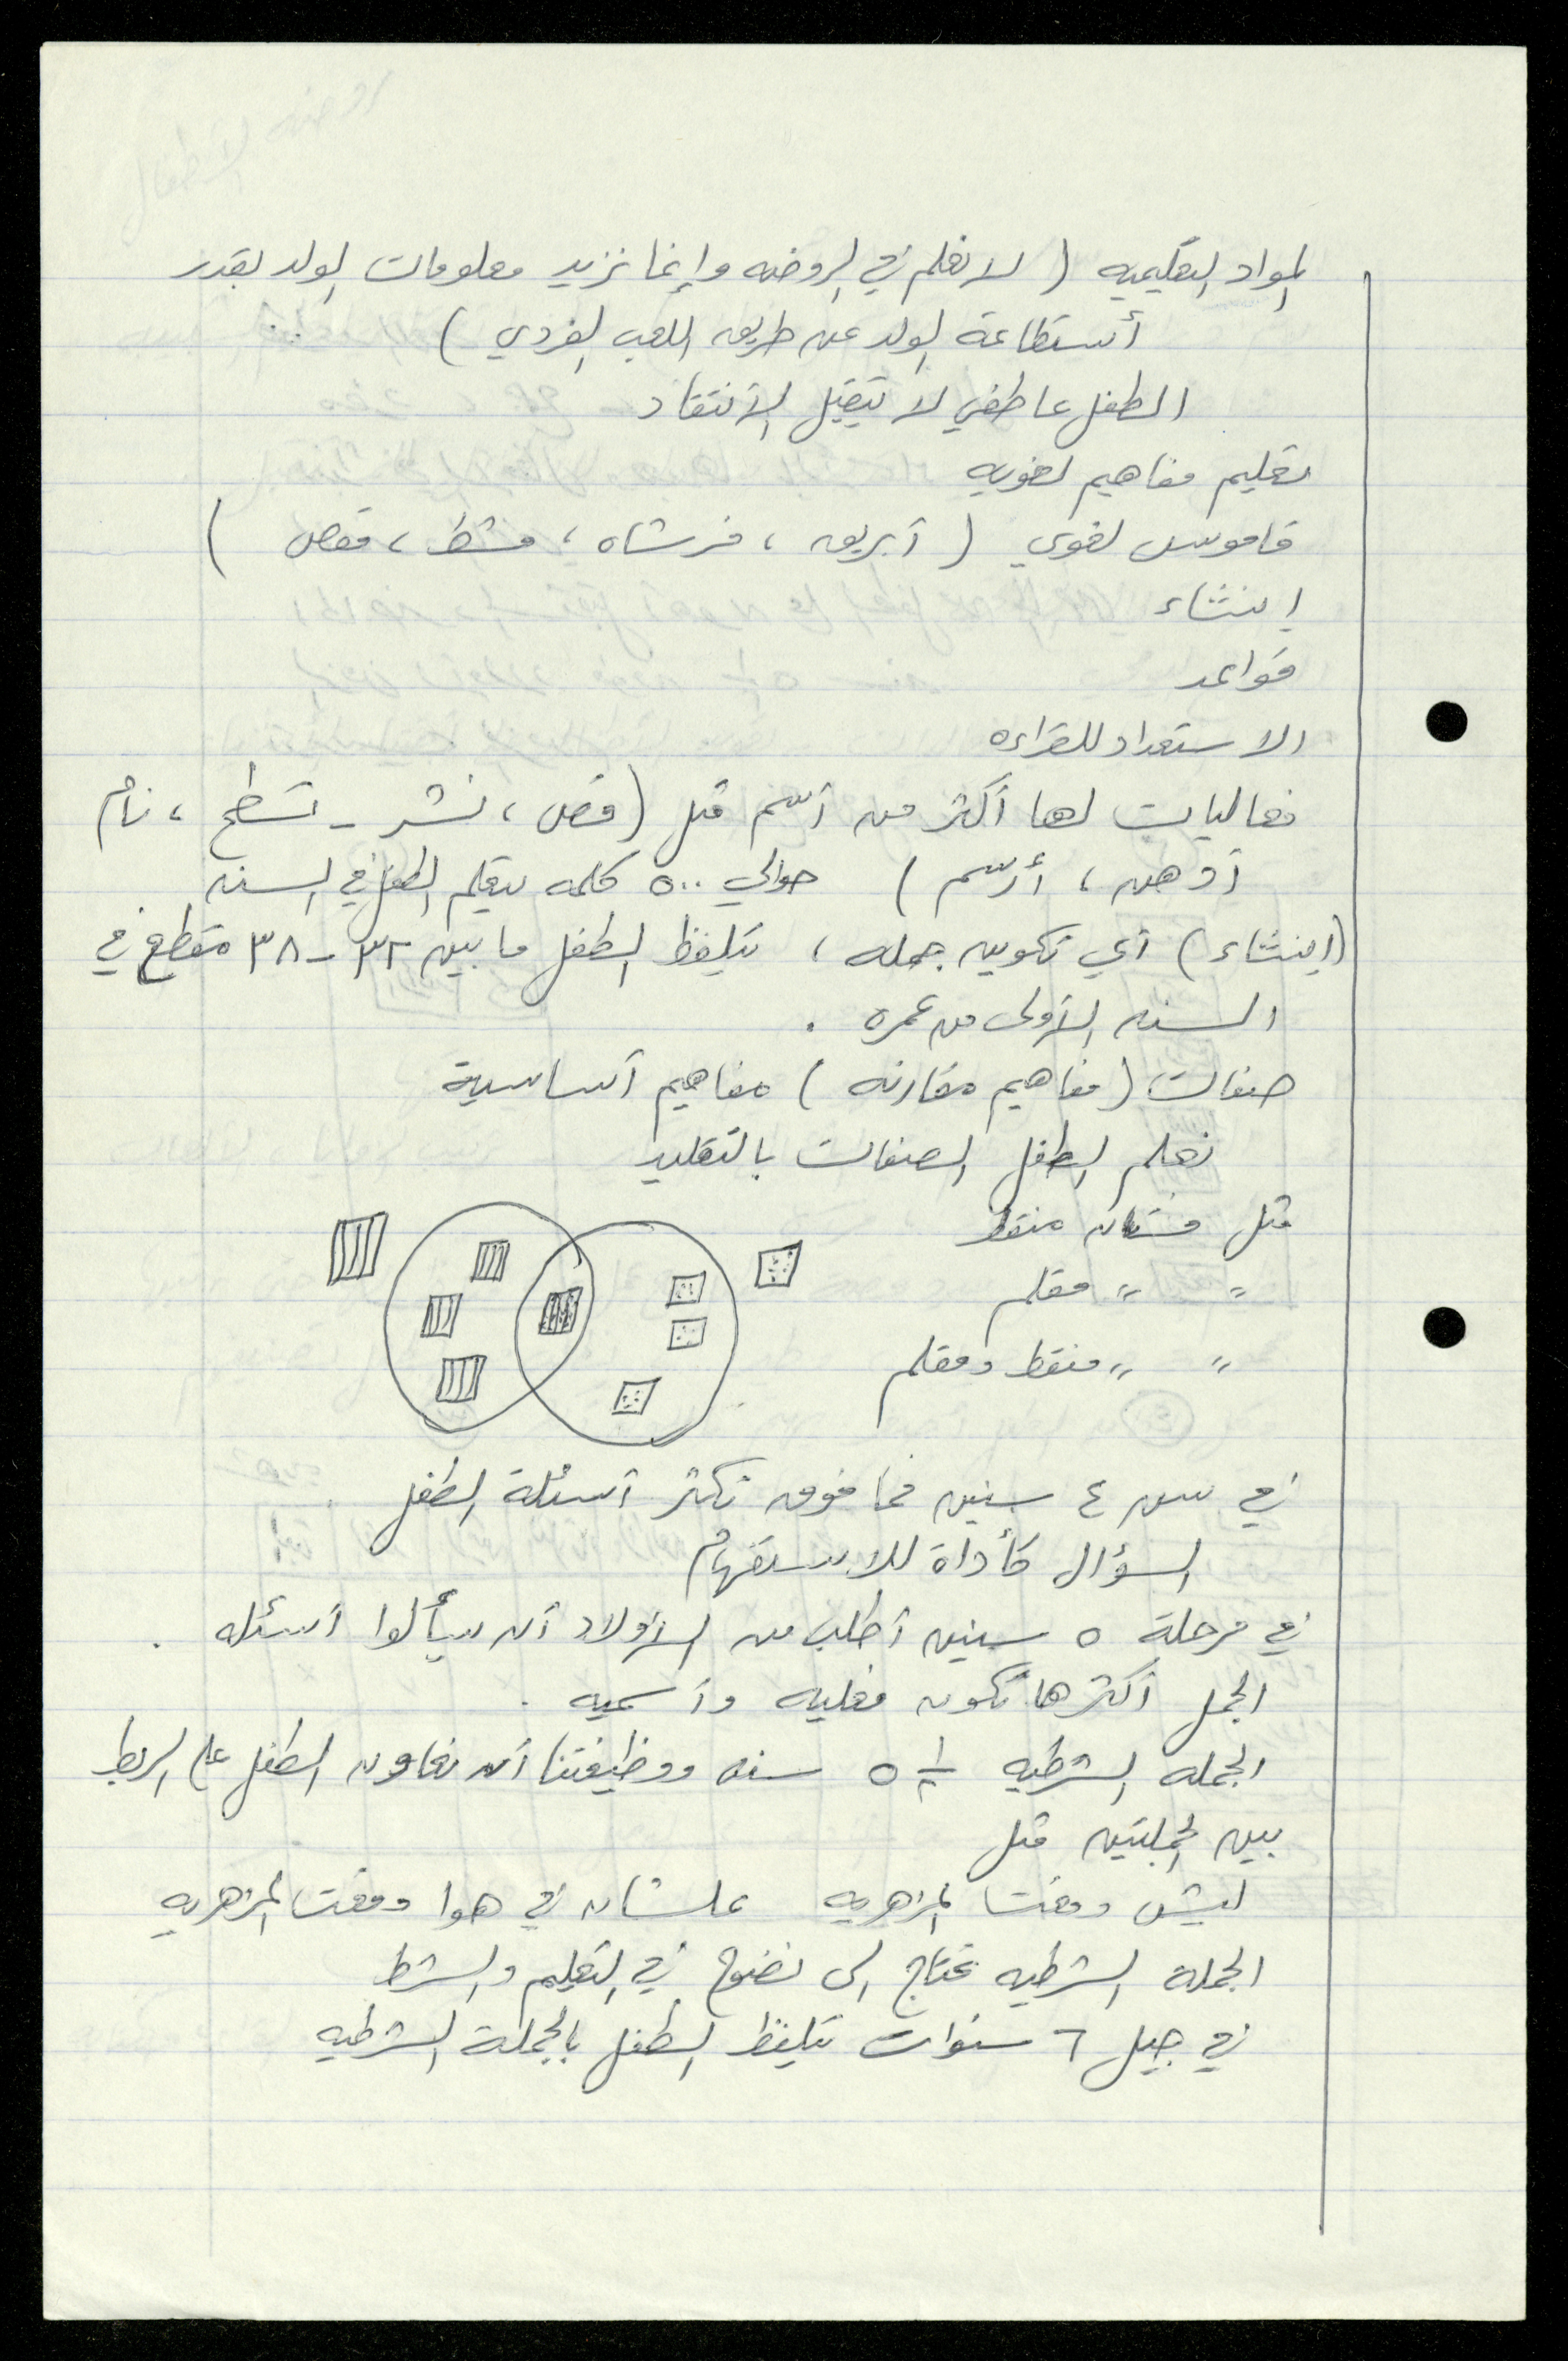 المواد التعليميه ( لا نعلم في الروضه وإنما نزيد معلومات الولد بقدر
أستطاعة الولد عن طريق اللعب الفردي )
الطفل عاطفي لا يتقبل الأنتقاد
تعليم مفاهيم لغويه
قاموس لغوي ( أبريق ، فرشاه ، مشط ، مقص )
إنشاء
قواعد
الاستعداد للقراءه
فعاليات لها أكثر من أسم مثل ( قص ، نشر - تسطح ، نام
أدهن ، أرسم ) حوالي ٥٠٠ كلمه يتعلم الطفل في السنه
(إنشاء) أي تكوين جمله ، يتلفظ الطفل ما بين ٣٢ - ٣٨ مقطع في
السنه الأولى من عمره .
صفات ( مفاهيم مقارنه ) مفاهيم أساسية
نعلم الطفل الصفات بالتقليد
مثل فستان منقط
" " مقلم
" " منقط ومقلم
في سن ٤ سنين فما فوق تكثر أسئلة الطفل
السؤال كأداة للاستفهام
في مرحلة ٥ سنين أطلب من الأولاد أن يسألوا أسئله .
الجمل أكثرها تكون فعليه وأسميه .
الجمله الشرطيه ٥ ١/٢ سنه ووظيفتنا أن نعاون الطفل على الربط
بين الجملتين مثل
ليش وقعت المزهريه علشان في هوا وقعت المزهريه
الجملة الشرطيه تحتاج الى نضوج في التعليم والشرط
في جيل ٦ سنوات يتلفظ الطفل بالجملة الشرطيه